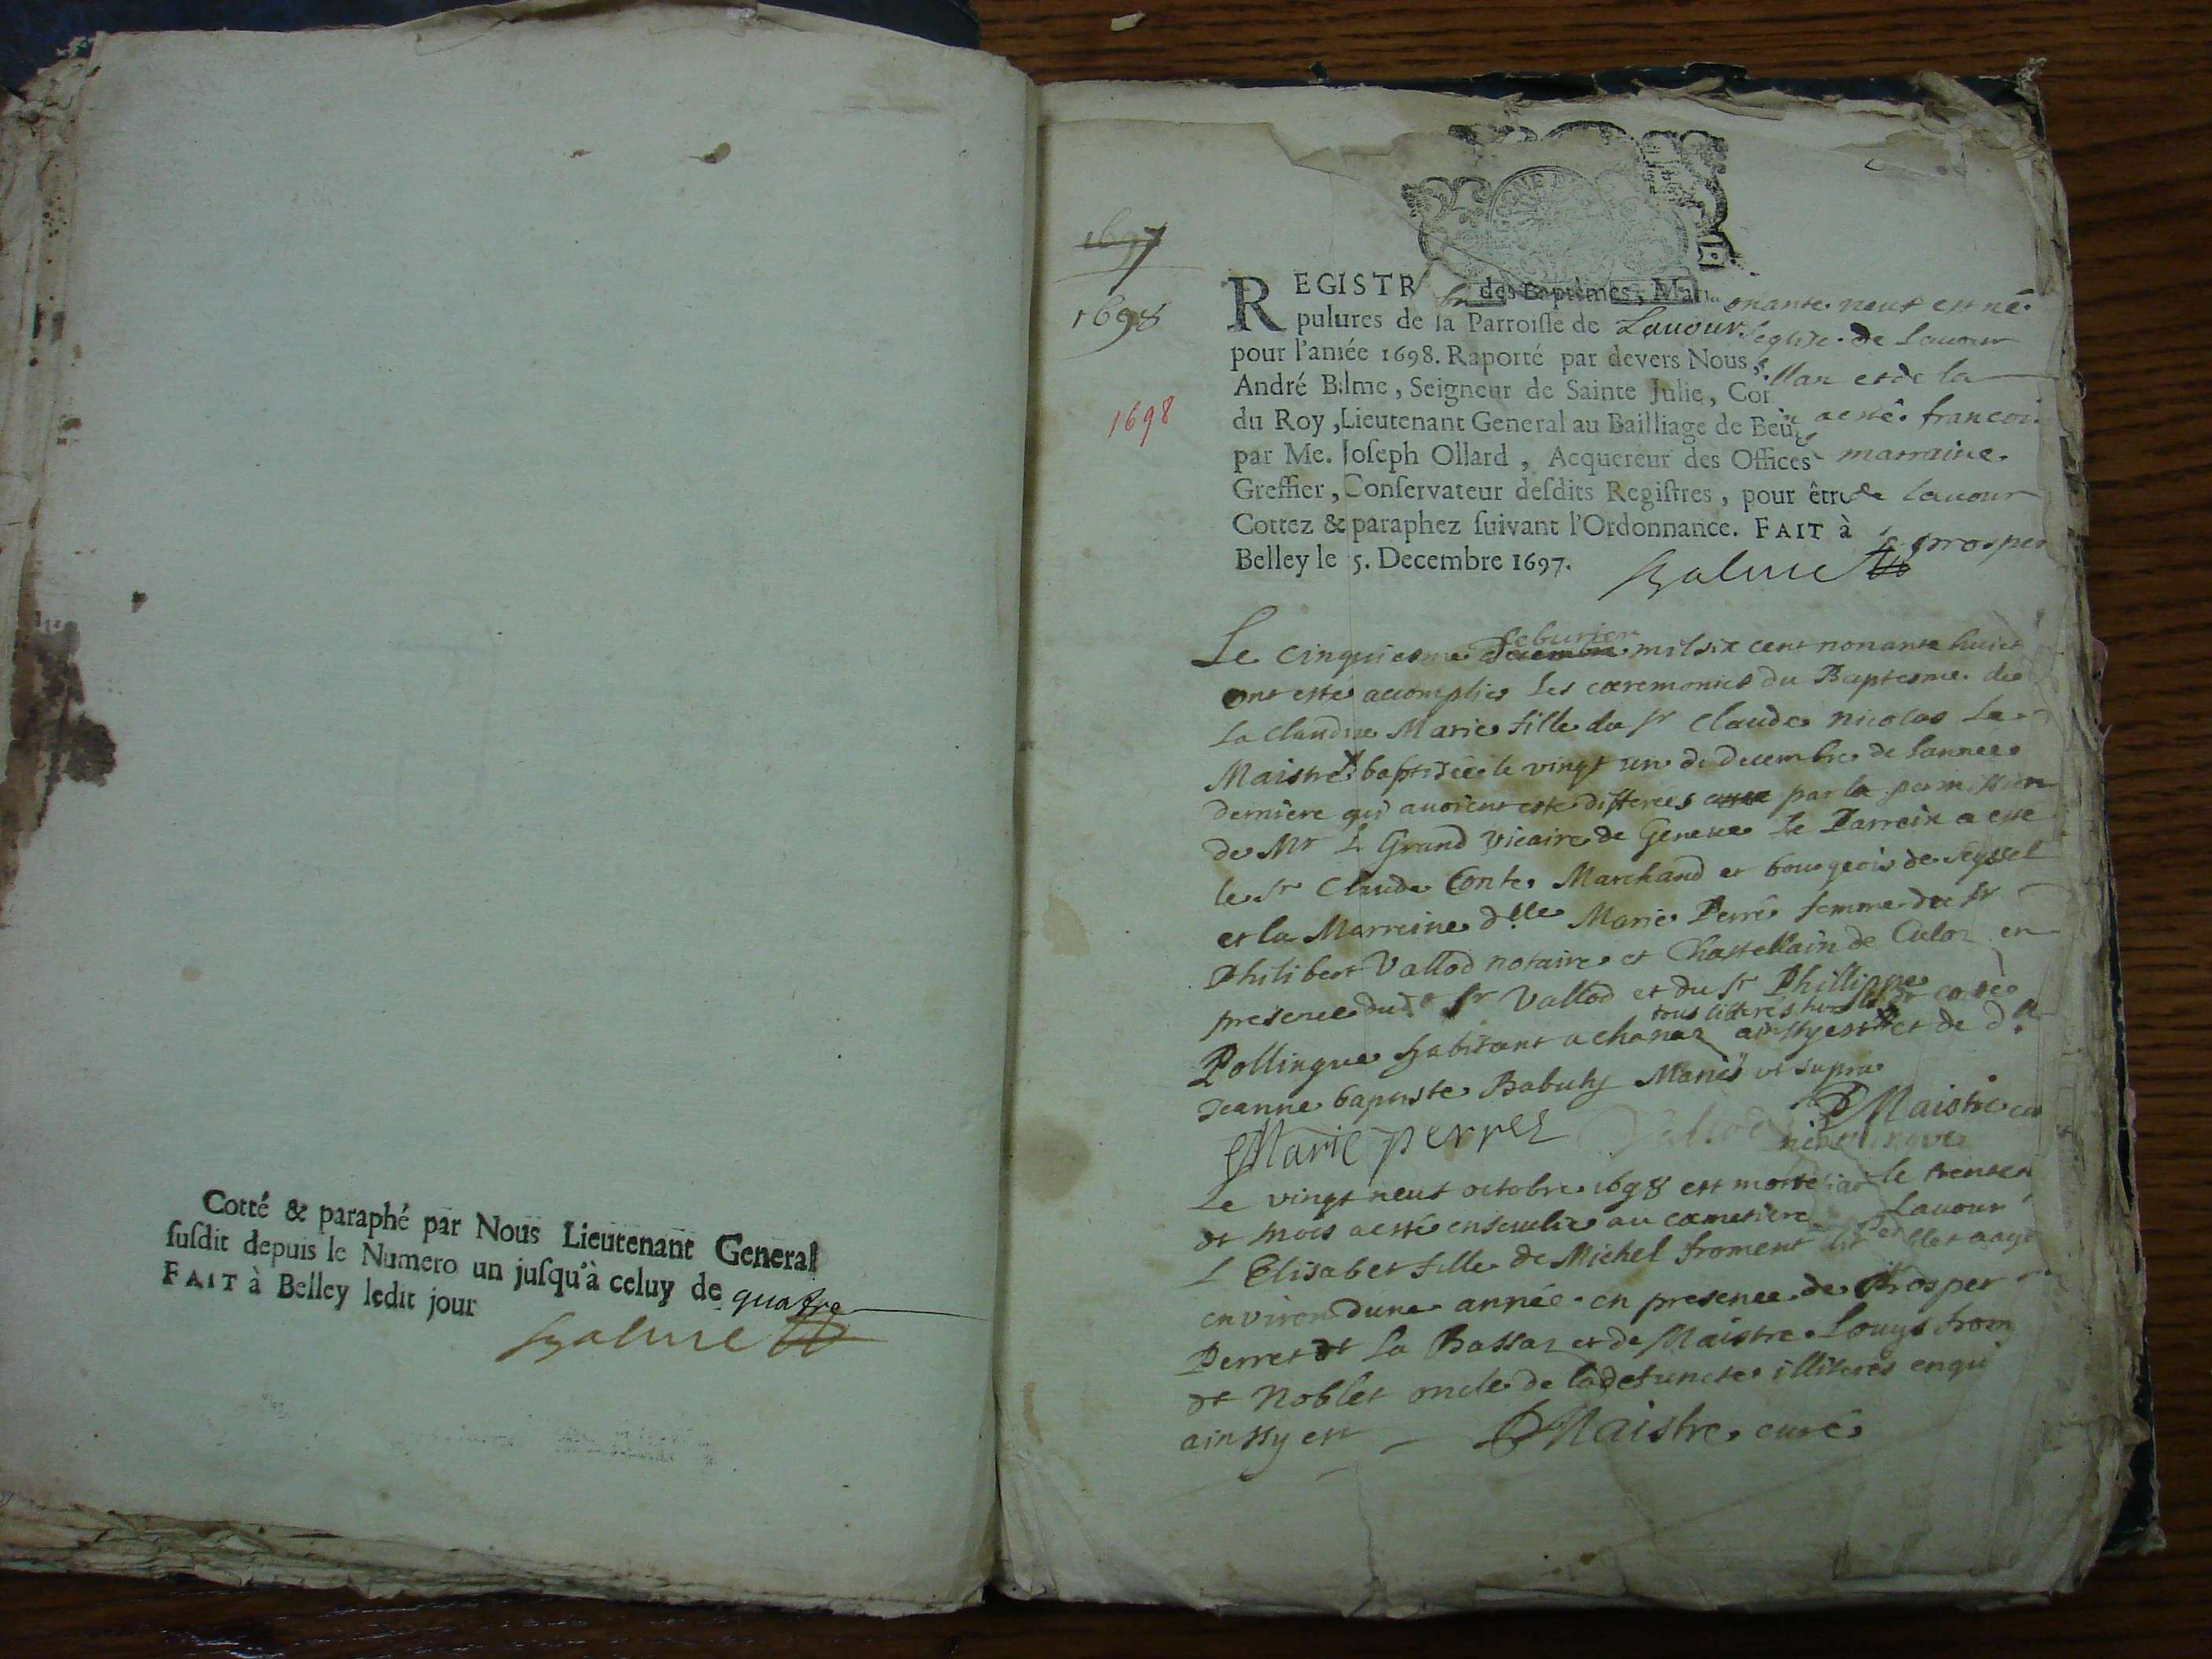 Cotté & paraphé par Nous Lieutenant General
susdit depuis le Numero un jusqu'à celuy de quatre
FAIT à Belley ledit jour
1697
1698
1698
REGISTR des Baptêmes, Ma
pulures de la Parroisse de Lauour
pour l'année 1698. Raporté par devers Nous
André Balme, Seigneur de Sainte Julie, Con
du Roy, Lieutenant General au Bailliage de Beu
par Me. Joseph Ollard, Acquereur des Offices
Greffier, Conservateur desdits Registres, pour être
Cottez & paraphez suivant l'Ordonnance. FAIT à
Belley le 5. Decembre 1697.
Balme
onante neuf est né
leglise de Lauour
et de la
a esté francoi
marraine
de lauour
prosper
Le cinquiesme feburier mil six cent nonante huict
ont esté accomplies les cœremonies du Baptesme de
la Claudine Marie fille du sr Claude Nicolas Le
Maistre baptisée le vingt un de decembre de lannee
derniere qui auoient esté differées par la permission
de Mr L Grand Vicaire de Geneue le Parrein a esté
le sr Claude Conte Marchand et bourgeois de Seyssel
et la Marreine dlle Marie Perré femme du sr
Philibert Vallod notaire et Chastellain de Culoz en
presence dud sr Vallod et du sr Phillippe
Pollingue habitant a chanaz ainsy est et de dlle
tous litterés
Jeanne baptiste Babuty Mariés vt supra
Marie perret Vallod Maistre cu
Le vingt neuf octobre 1698 est morte et le trente
dt mois a esté enseuelie au cœmetiere Lauour
L Elisabet fille de Michel froment dit aagé
environ dune année en presence de Prosper
Perret dt La Bassaz et de Maistre Louys from
dt Noblet oncle de la defuncte illiterés enqui
ainsy est DMaistre curé